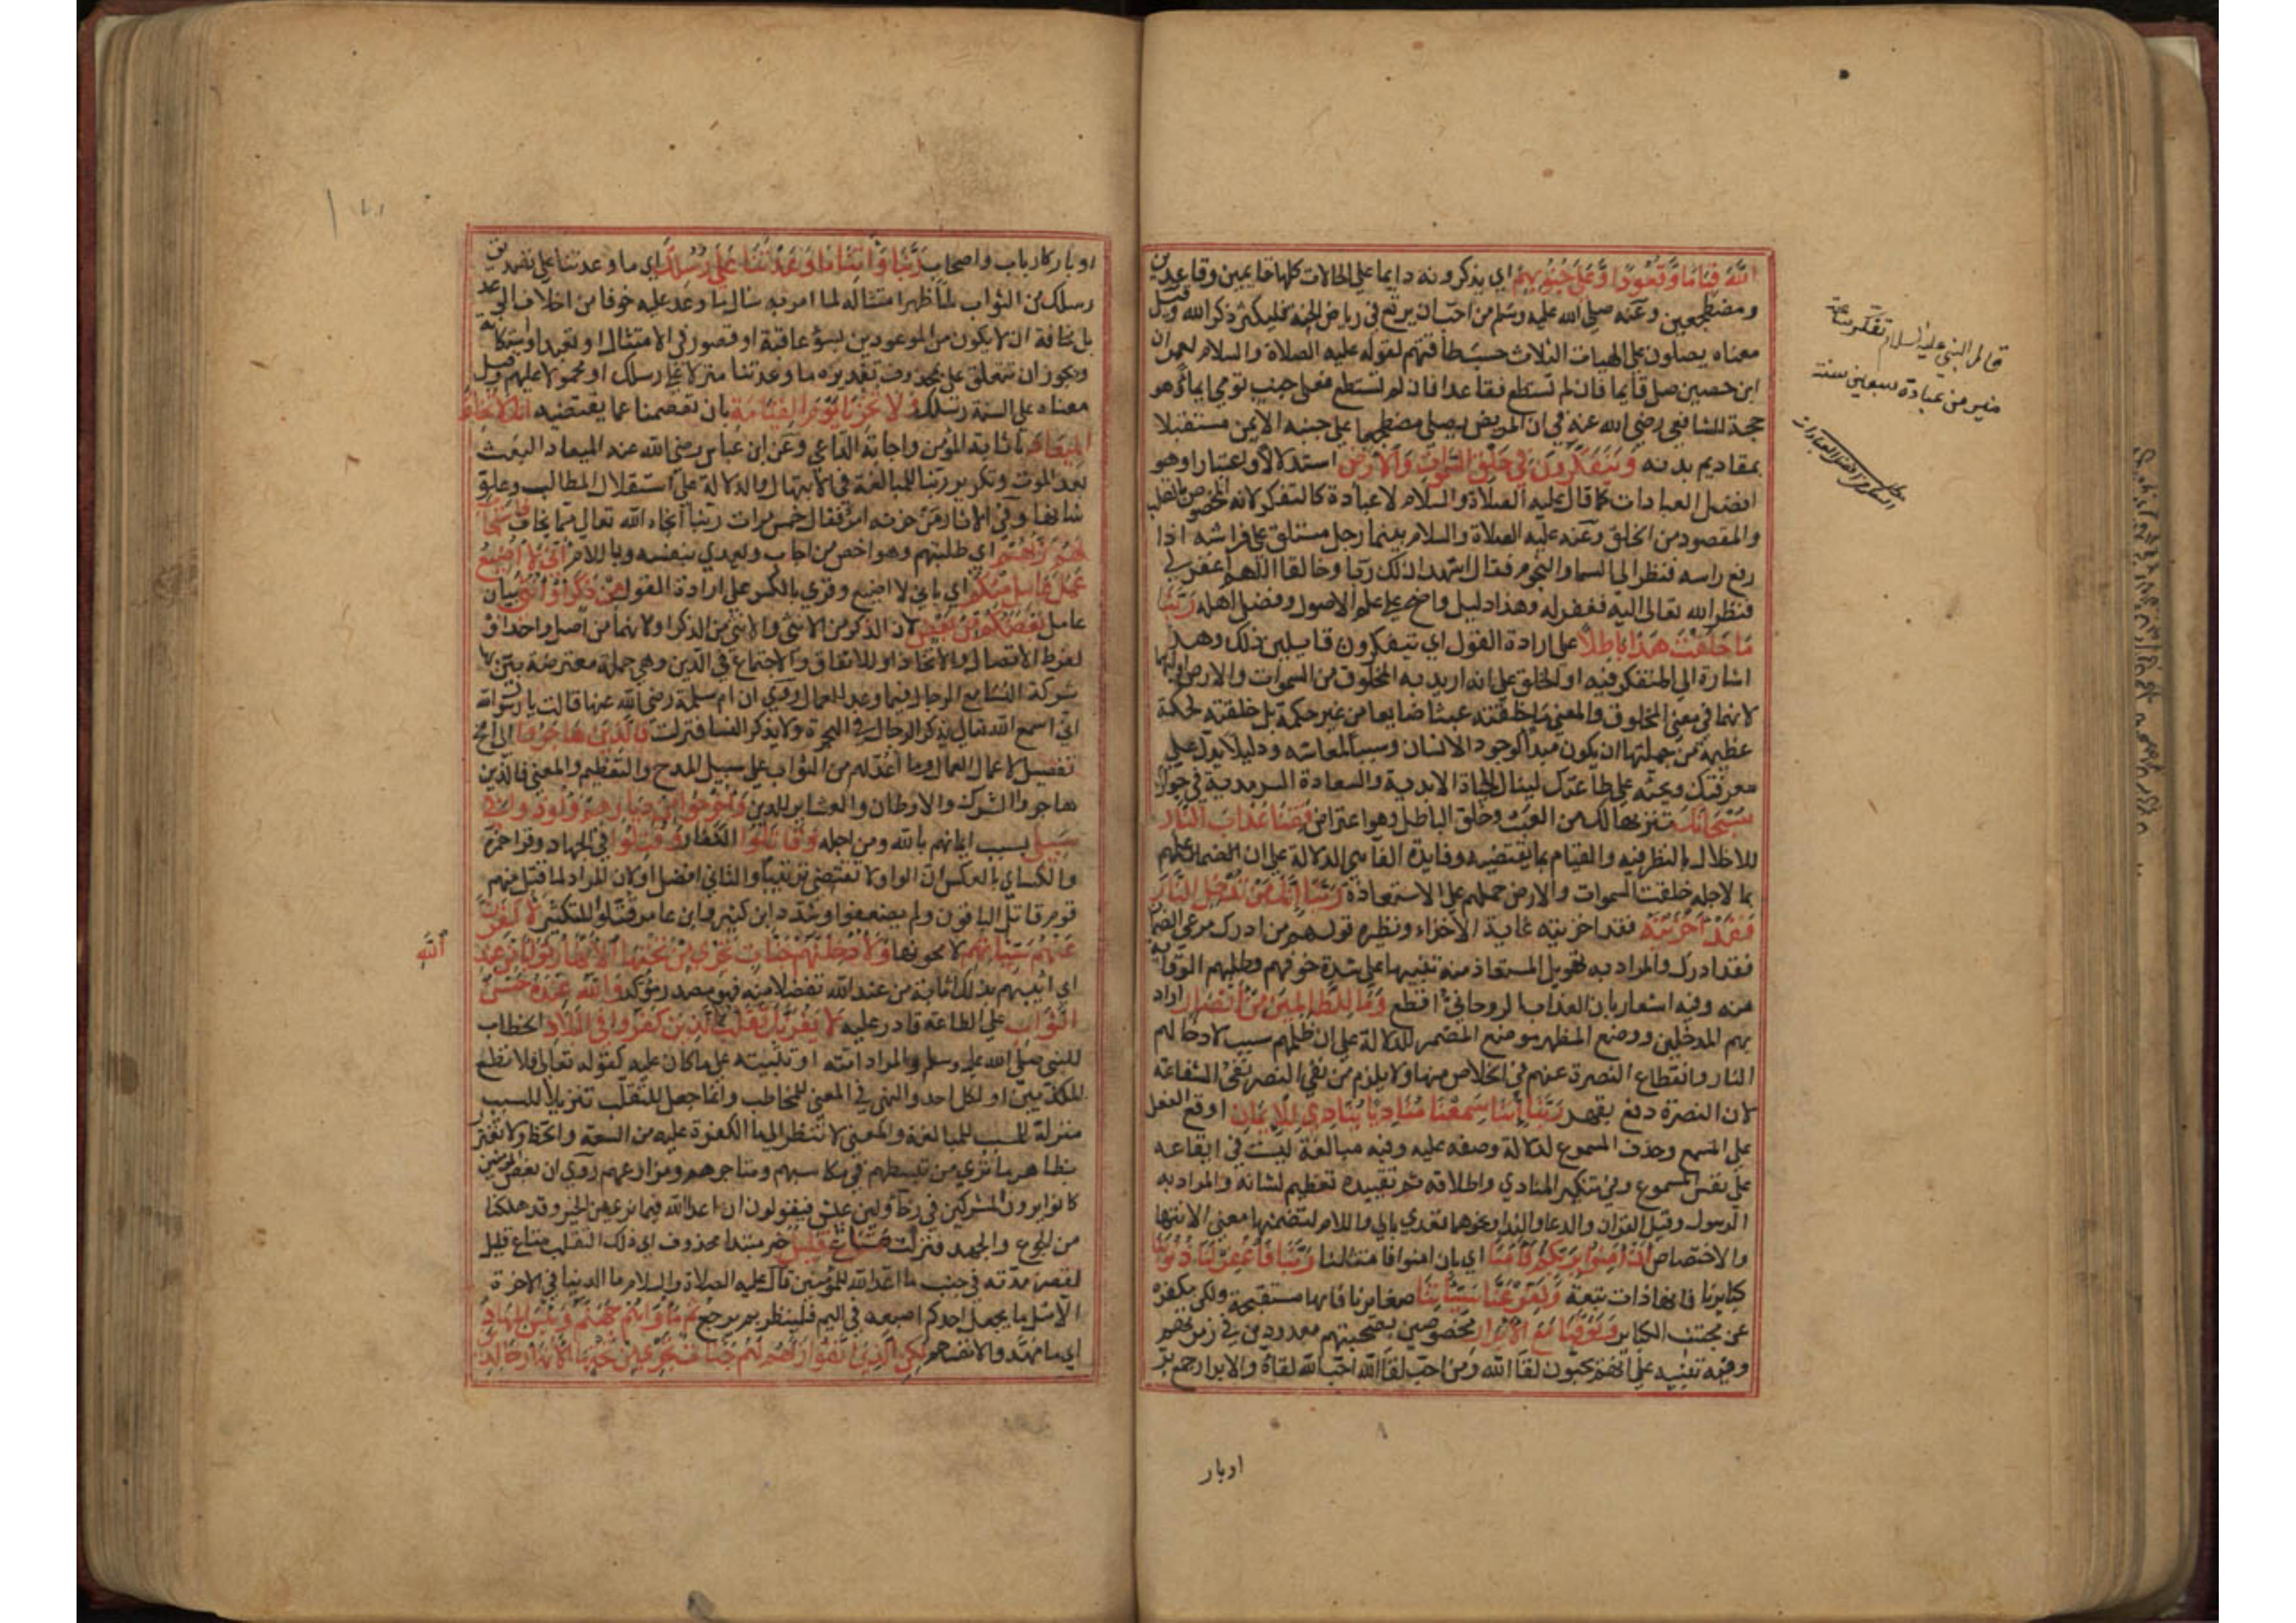 الله قياما وقعودا وعلى جنوبهم اي يذكرونه دايما على الحالات كلها قايمين وقاعدين
ومضطجعين وعنه صلى الله عليه وسلم من احب ان يرتع في رياض الجنة فليكثر ذكر الله وقيل
معناه يصلون على الهيات الثلاث حسب طاقتهم لقوله عليه الصلاة والسلام لعمران
ابن حصين صل قايما فان لم تستطع فقاعدا فان لم تستطع فعلى جنب تومي ايماء وهو
حجة للشافعي رضي الله عنه في ان المريض يصلي مضطجعا على جنبه الايمن مستقبلا
بمقاديم بدنه ويتفكرون في خلق السموات والارض استدلالا واعتبارا وهو
افضل العبادات كما قال عليه الصلاة والسلام لا عبادة كالتفكر لانه المخصوص بالقلب
والمقصود من الخلق وعنه عليه الصلاة والسلام بينما رجل مستلق على فراشه اذا
رفع راسه فنظر الى السماء والنجوم فقال اشهد ان لك ربا وخالقا اللهم اغفر لي
فنظر الله تعالى اليه فغفر له وهذا دليل واضح على علم الاصول وفضل اهله ربنا
ما خلقت هذا باطلا على ارادة القول اي يتفكرون قايلين ذلك وهذا
اشارة الى المتفكر فيه او الخلق على انه اريد به المخلوق من السموات والارض او اليهما
لانهما في معنى المخلوق والمعنى ما خلقته عبثا ضايعا من غير حكمة بل خلقته لحكمة
عظيمة من جملتها ان يكون مبدأ لوجود الانسان وسببا لمعاشه ودليلا يدل على
معرفتك ويحثه على طاعتك لينال الحياة الابدية والسعادة السرمدية في جوارك
سبحانك تنزيها لك من العبث وخلق الباطل وهو اعتراض فقنا عذاب النار
للاخلال بالنظر فيه والقيام بما يقتضيه وفايدة الفا هي الدلالة على ان علمهم
بما لاجله خلقت السموات والارض حملهم على الاستعاذة ربنا انك من تدخل النار
فقد اخزيته فقد اخزيته غاية الاخزاء ونظيره قولهم من ادرك مرعى الضمان
فقد ادرك والمراد به تهويل المستعاذ منه تنبيها على شدة خوفهم وطلبهم الوقاية
منه وفيه اشعار بان العذاب الروحاني افظع وما للظالمين من انصار اراد
بهم المدخلين ووضع المظهر موضع المضمر للدلالة على ان ظلمهم سبب لادخالهم
النار وانقطاع النصرة عنهم في الخلاص منها ولا يلزم من نفي النصرة نفي الشفاعة
لان النصرة دفع بقهر ربنا اننا سمعنا مناديا ينادي للايمان اوقع الفعل
على المسمع وحذف المسموع لدلالة وصفه عليه وفيه مبالغة ليست في ايقاعه
على نفس المسموع وفي تنكير المنادي واطلاقه ثم تقييده تعظيم لشانه والمراد به
الرسول وقيل القران والدعا والندا ونحوهما تعدي بالى واللام لتضمنها معنى الانتها
والاختصاص ان امنوا بربكم فامنا اي بان امنوا فامتثلنا ربنا فاغفر لنا ذنوبنا
كبايرنا فانها ذات تبعة وكفر عنا سيئاتنا صغايرنا فانها مستقبحة ولكن مكفرة
عن مجتنب الكباير وتوفنا مع الابرار مخصوصين بصحبتهم معدودين في زمرتهم
وفيه تنبيه على انهم يحبون لقاء الله ومن احب لقاء الله احب الله لقاه والابرار جمع بر
اوبار
قال النبي عليه السلام تفكر ساعة
خير من عبادة سبعين سنة
او بار كارباب واصحاب ربنا واتنا ما وعدتنا على رسلك اي ما وعدتنا على تصديق
رسلك من الثواب لما اظهر امتثاله لما امر به سال ما وعد عليه خوفا من اخلاف الوعد
بل مخافة ان لا يكون من الموعودين لسوء عاقبة او قصور في الامتثال او تعبدا واستكانة
ويجوز ان تتعلق على بمحذوف تقديره ما وعدتنا منزلا على رسلك او محمولا عليهم وقيل
معناه على السنة رسلك ولا تخزنا يوم القيامة بان تعصمنا عما يقتضيه انك لا تخلف
الميعاد باثابة المؤمن واجابة الداعي وعن ابن عباس رضي الله عنه الميعاد البعث
بعد الموت وتكرير ربنا للمبالغة في الابتهال والدلالة على استقلال المطالب وعلو
شانها وفي الاثار من حزبه امر فقال خمس مرات ربنا انجاه الله تعالى مما يخاف فاستجاب
لهم ربهم اي طلبتهم وهو اخص من اجاب ويعدي بنفسه وباللام اني لا اضيع
عمل عامل منكم اي باني لا اضيع وقري بالكسر على ارادة القول من ذكر او انثى بيان
عامل بعضكم من بعض لان الذكر من الانثى والانثى من الذكر او لانهما من اصل واحد او
لفرط الاتصال والاتحاد او للاتفاق والاجتماع في الدين وهي جملة معترضة بين بها
شركة النساء مع الرجال فيما وعد للعمال روي ان ام سلمة رضي الله عنها قالت يا رسول الله
اني اسمع الله تعالى يذكر الرجال في الهجرة ولا يذكر النسا فنزلت فالذين هاجروا الى اخره
تفصيل لاعمال العمال وما اعد لهم من الثواب على سبيل المدح والتعظيم والمعنى فالذين
هاجروا الشرك والاوطان والعشاير للدين واخرجوا من ديارهم واوذوا في
سبيلي بسبب ايمانهم بالله ومن اجله وقاتلوا الكفار وقتلوا في الجهاد وقرا حمزة
والكسائي بالعكس لان الواو لا تقتضي ترتيبا والثاني افضل او لان المراد لما قتل منهم
قوم قاتل الباقون ولم يضعفوا وشدد ابن كثير وابن عامر قتلوا للتكثير لاكفرن
عنهم سيئاتهم لامحونها ولادخلنهم جنات تجري من تحتها الانهار ثوابا من عند
الله
اي اثيبهم بذلك اثابة من عند الله تفضلا منه فهو مصدر مؤكد والله عنده حسن
الثواب على الطاعة قادر عليه لا يغرنك تقلب الذين كفروا في البلاد الخطاب
للنبي صلى الله عليه وسلم والمراد امته او تثبيته على ما كان عليه كقوله تعالى فلا تطع
المكذبين او لكل احد والنهي في المعنى للمخاطب وانما جعل للتقلب تنزيلا للسبب
منزلة المسبب للمبالغة والمعنى لا تنظر الى ما الكفرة عليه من السعة والحظ ولا تغتر
بظاهر ما ترى من تبسطهم في مكاسبهم ومتاجرهم ومزارعهم روي ان بعض المؤمنين
كانوا يرون المشركين في رخاء ولين عيش فيقولون ان اعدا الله فيما نرى من الخير وقد هلكنا
من الجوع والجهد فنزلت متاع قليل خبر مبتدا محذوف اي ذلك التقلب متاع قليل
لقصر مدته في جنب ما اعد الله للمؤمنين قال عليه الصلاة والسلام ما الدنيا في الاخرة
الا مثل ما يجعل احدكم اصبعه في اليم فلينظر بم يرجع ثم ماواهم جهنم وبئس المهاد
اي ما مهدوا لانفسهم لكن الذين اتقوا ربهم لهم جنات تجري من تحتها الانهار خالدين